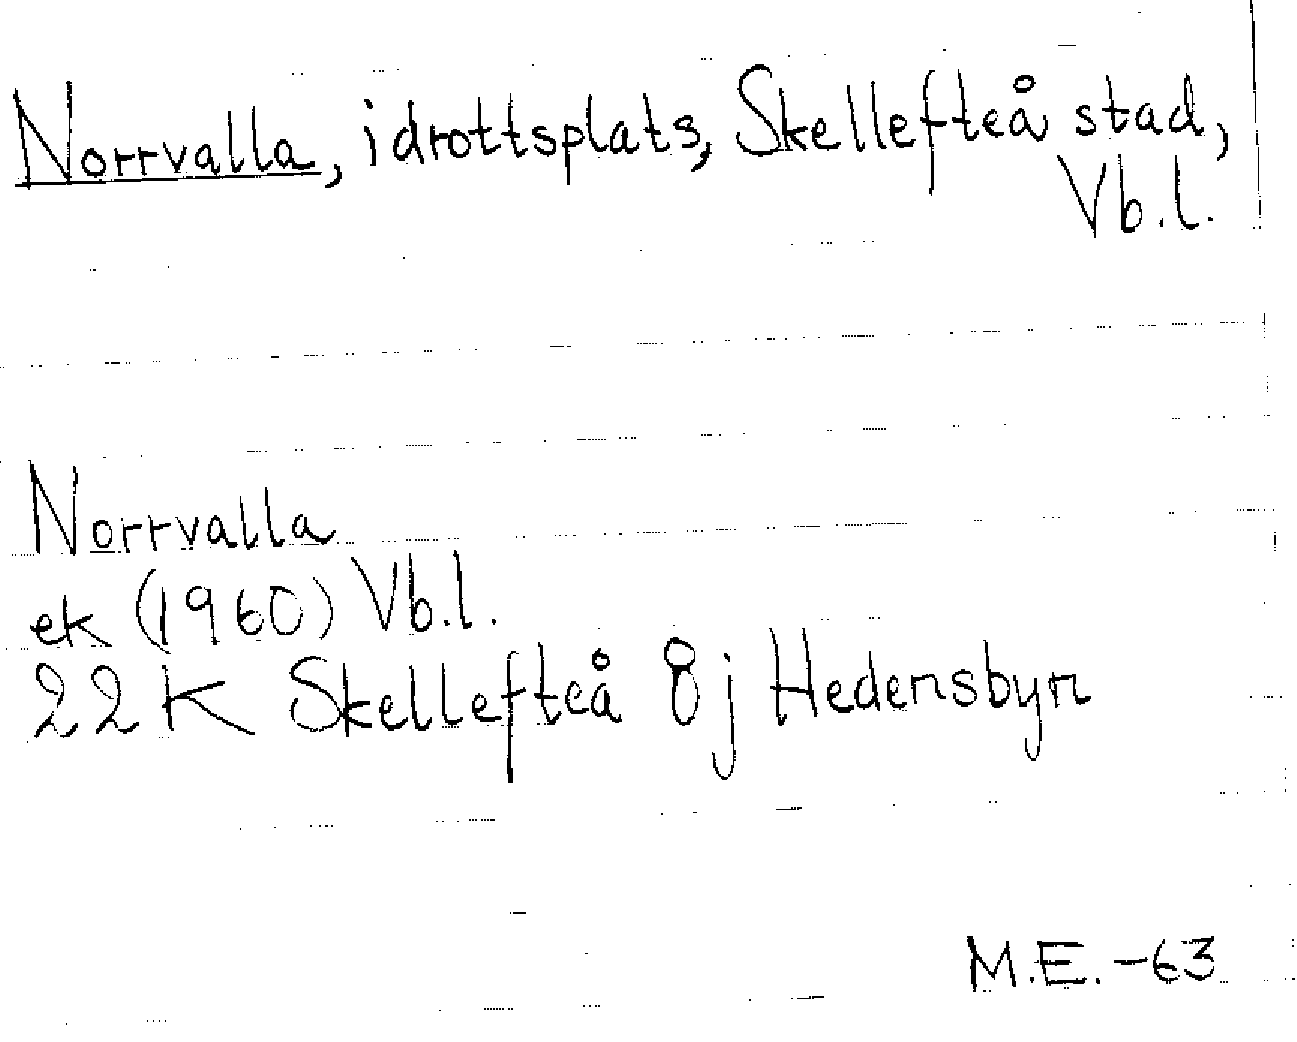 Norrvalla, idrottsplats, Skellefteå stad,
Vb.l.
Norrvalla
ek (1960) Vb.l.
22K Skellefteå 8j Hedensbyn
M.E. -63